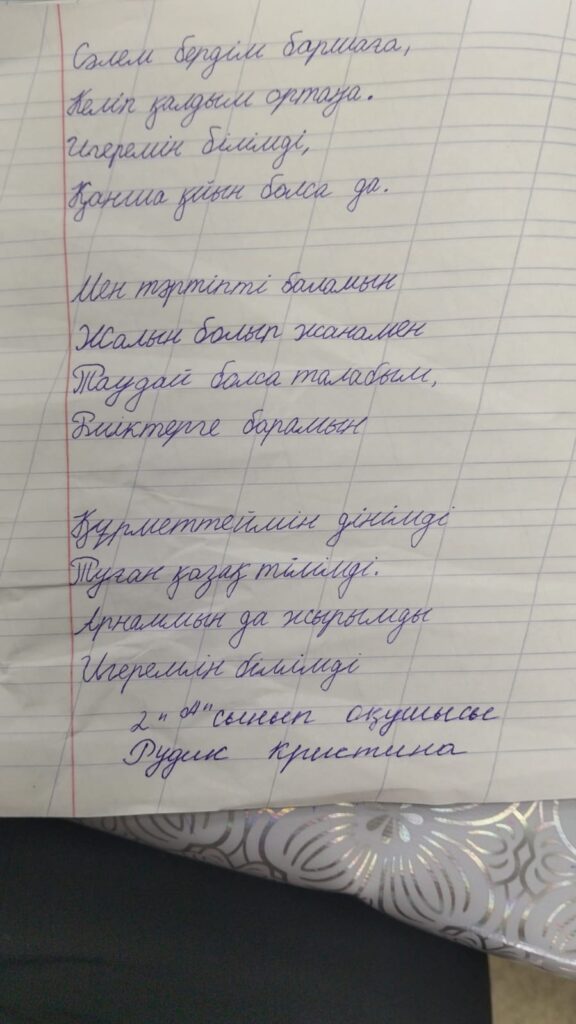 Сәлем бердім баршаға,
Келіп қалдым ортаға.
Игеремін білімді,
Қанша қйын болса да.
Мен тәртіпті баламын
Жалын болып жанамен
Таудай болса талабым,
Биіктерге барамын
Құрметтеймін дінімді
Туған қазақ тілімді.
Арнаммын да жырымды
Игеремін білімді
2 "А" сынып оқушысы
Рудик Кристина